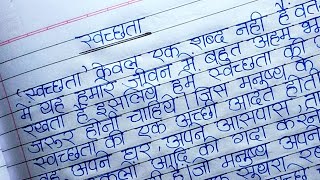 स्वच्छता
'स्वच्छता' केवल एक शब्द नहीं है वरन
में यह हमारे जीवन में बहुत अहम भू
रखता है इसलिये हमें स्वच्छता का
जरूर होनी चाहिये। जिस मनुष्य के
स्वच्छता की एक अच्छी आदत होती
वह अपने घर, अपने आसपास,
आदि को
जो मनुष्य अपने